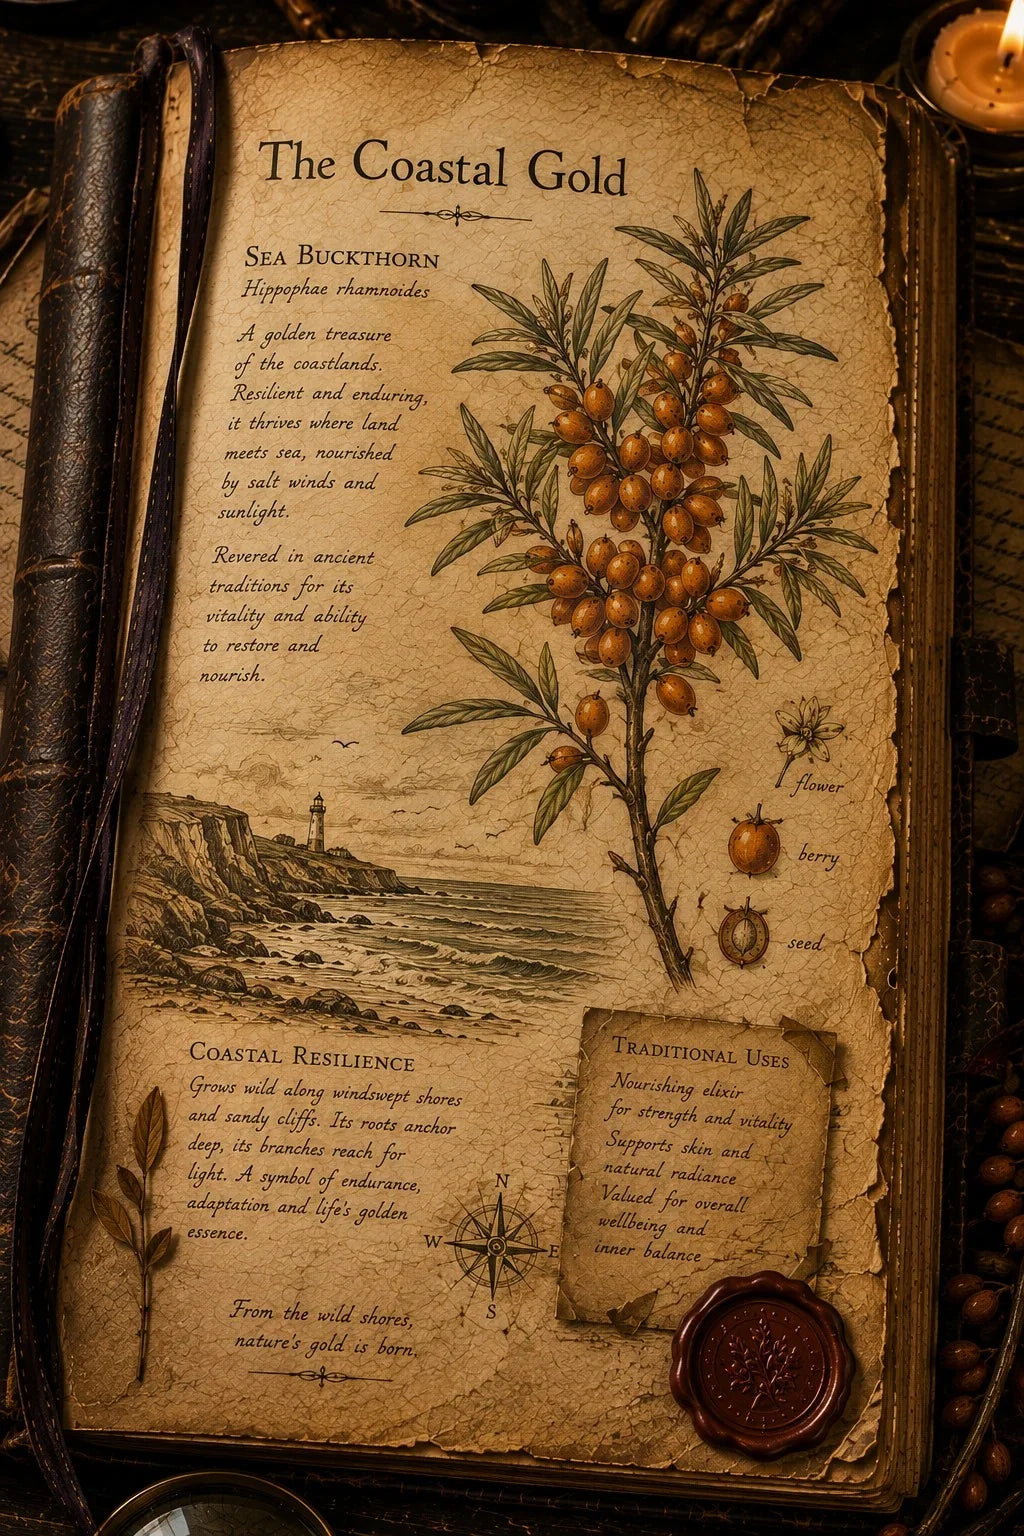 The Coastal Gold
SEA BUCKTHORN
Hippophae rhamnoides
A golden treasure
of the coastlands.
Resilient and enduring,
it thrives where land
meets sea, nourished
by salt winds and
sunlight.
Revered in ancient
traditions for its
vitality and ability
to restore and
nourish.
flower
berry
seed
COASTAL RESILIENCE
Grows wild along windswept shores
and sandy cliffs. Its roots anchor
deep, its branches reach for
light. A symbol of endurance,
adaptation and life's golden
essence.
N
W
E
S
TRADITIONAL USES
Nourishing elixir
for strength and vitality
Supports skin and
natural radiance
Valued for overall
wellbeing and
inner balance
From the wild shores,
nature's gold is born.